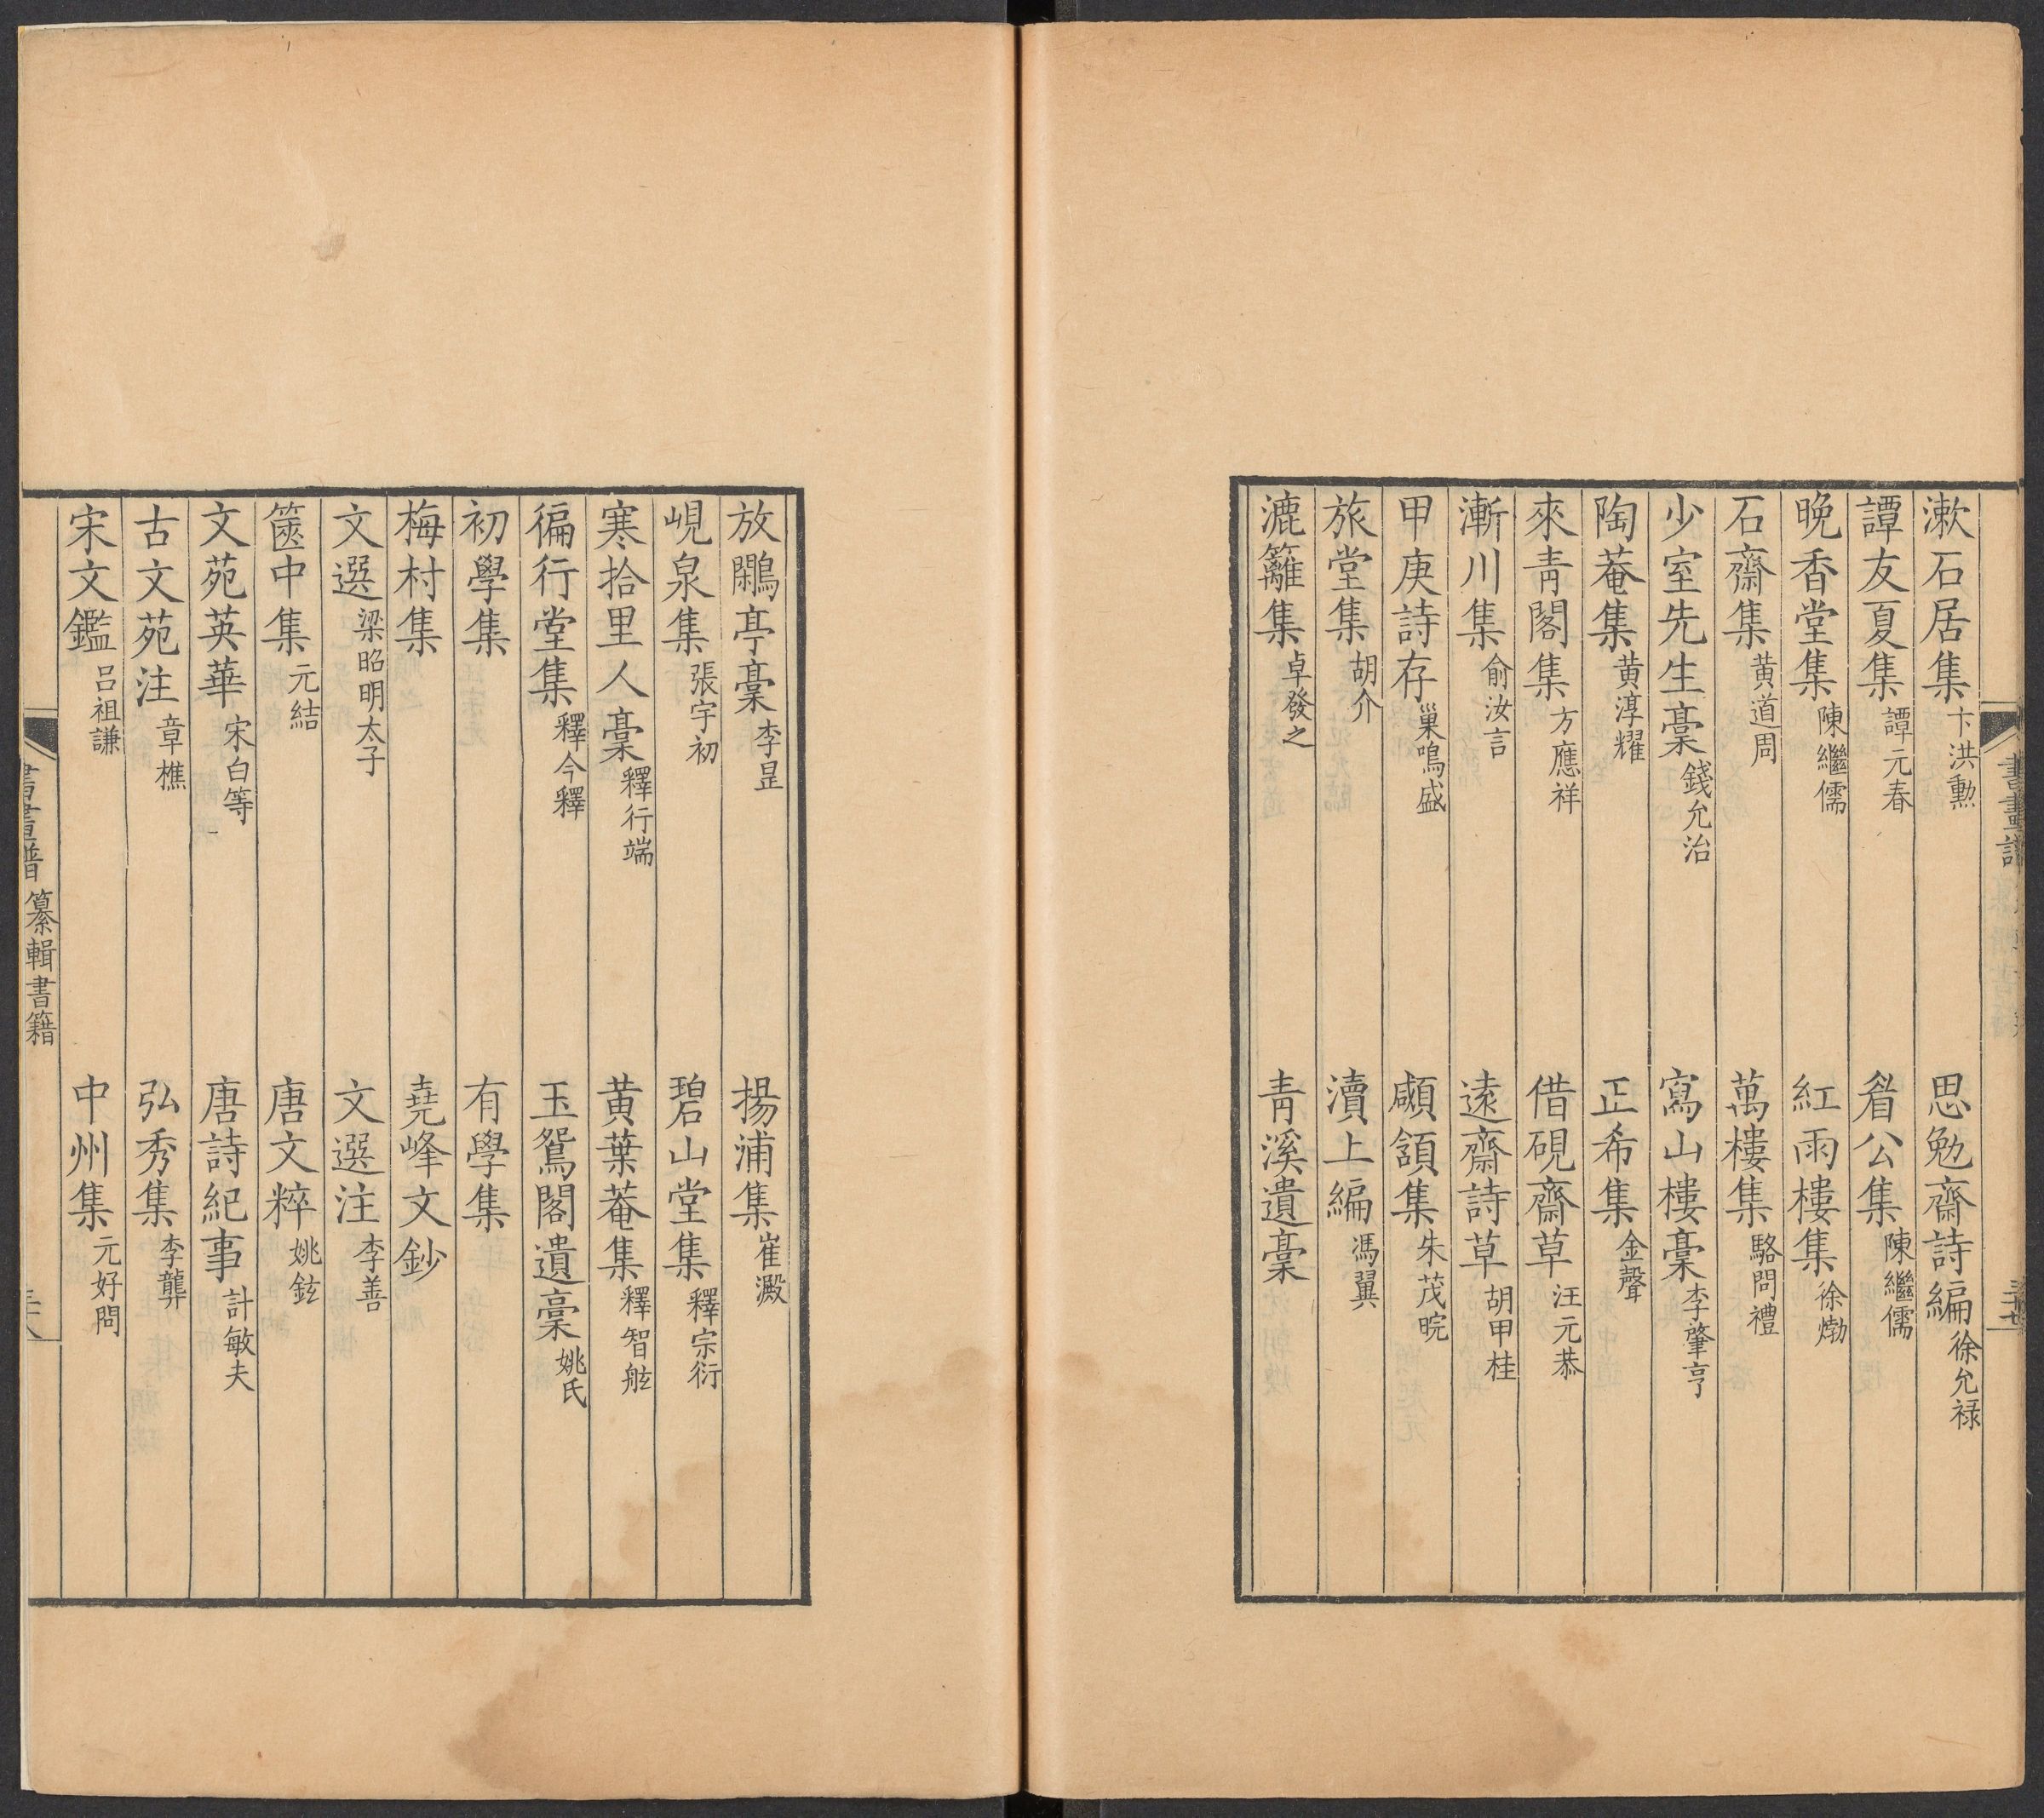 漱石居集 卞洪勲 思勉齋詩編 徐允禄
譚友夏集 譚元春 眉公集 陳繼儒
晚香堂集 陳繼儒 紅雨樓集 徐𤊹
石齋集 黄道周 萬樓集 駱問禮
少室先生稾 錢允治 寫山樓稾 李肇亨
陶菴集 黄淳耀 正希集 金聲
來青閣集 方應祥 借硯齋草 汪元恭
漸川集 俞汝言 遠齋詩草 胡甲桂
甲庚詩存 巢鳴盛 顑頷集 朱茂晥
旅堂集 胡介 瀆上編 馮翼
漉籬集 卓發之 青溪遺稾
放鷳亭稾 李昰 揚浦集 崔澱
峴泉集 張宇初 碧山堂集 釋宗衍
寒拾里人稾 釋行端 黄葉菴集 釋智舷
徧行堂集 釋今釋 玉鴛閣遺稾 姚氏
初學集 有學集
梅村集 堯峰文鈔
文選 梁昭明太子 文選注 李善
篋中集 元結 唐文粹 姚鉉
文苑英華 宋白等 唐詩紀事 計敏夫
古文苑注 章樵 弘秀集 李龏
宋文鑑 呂祖謙 中州集 元好問
書畫譜 纂輯書籍